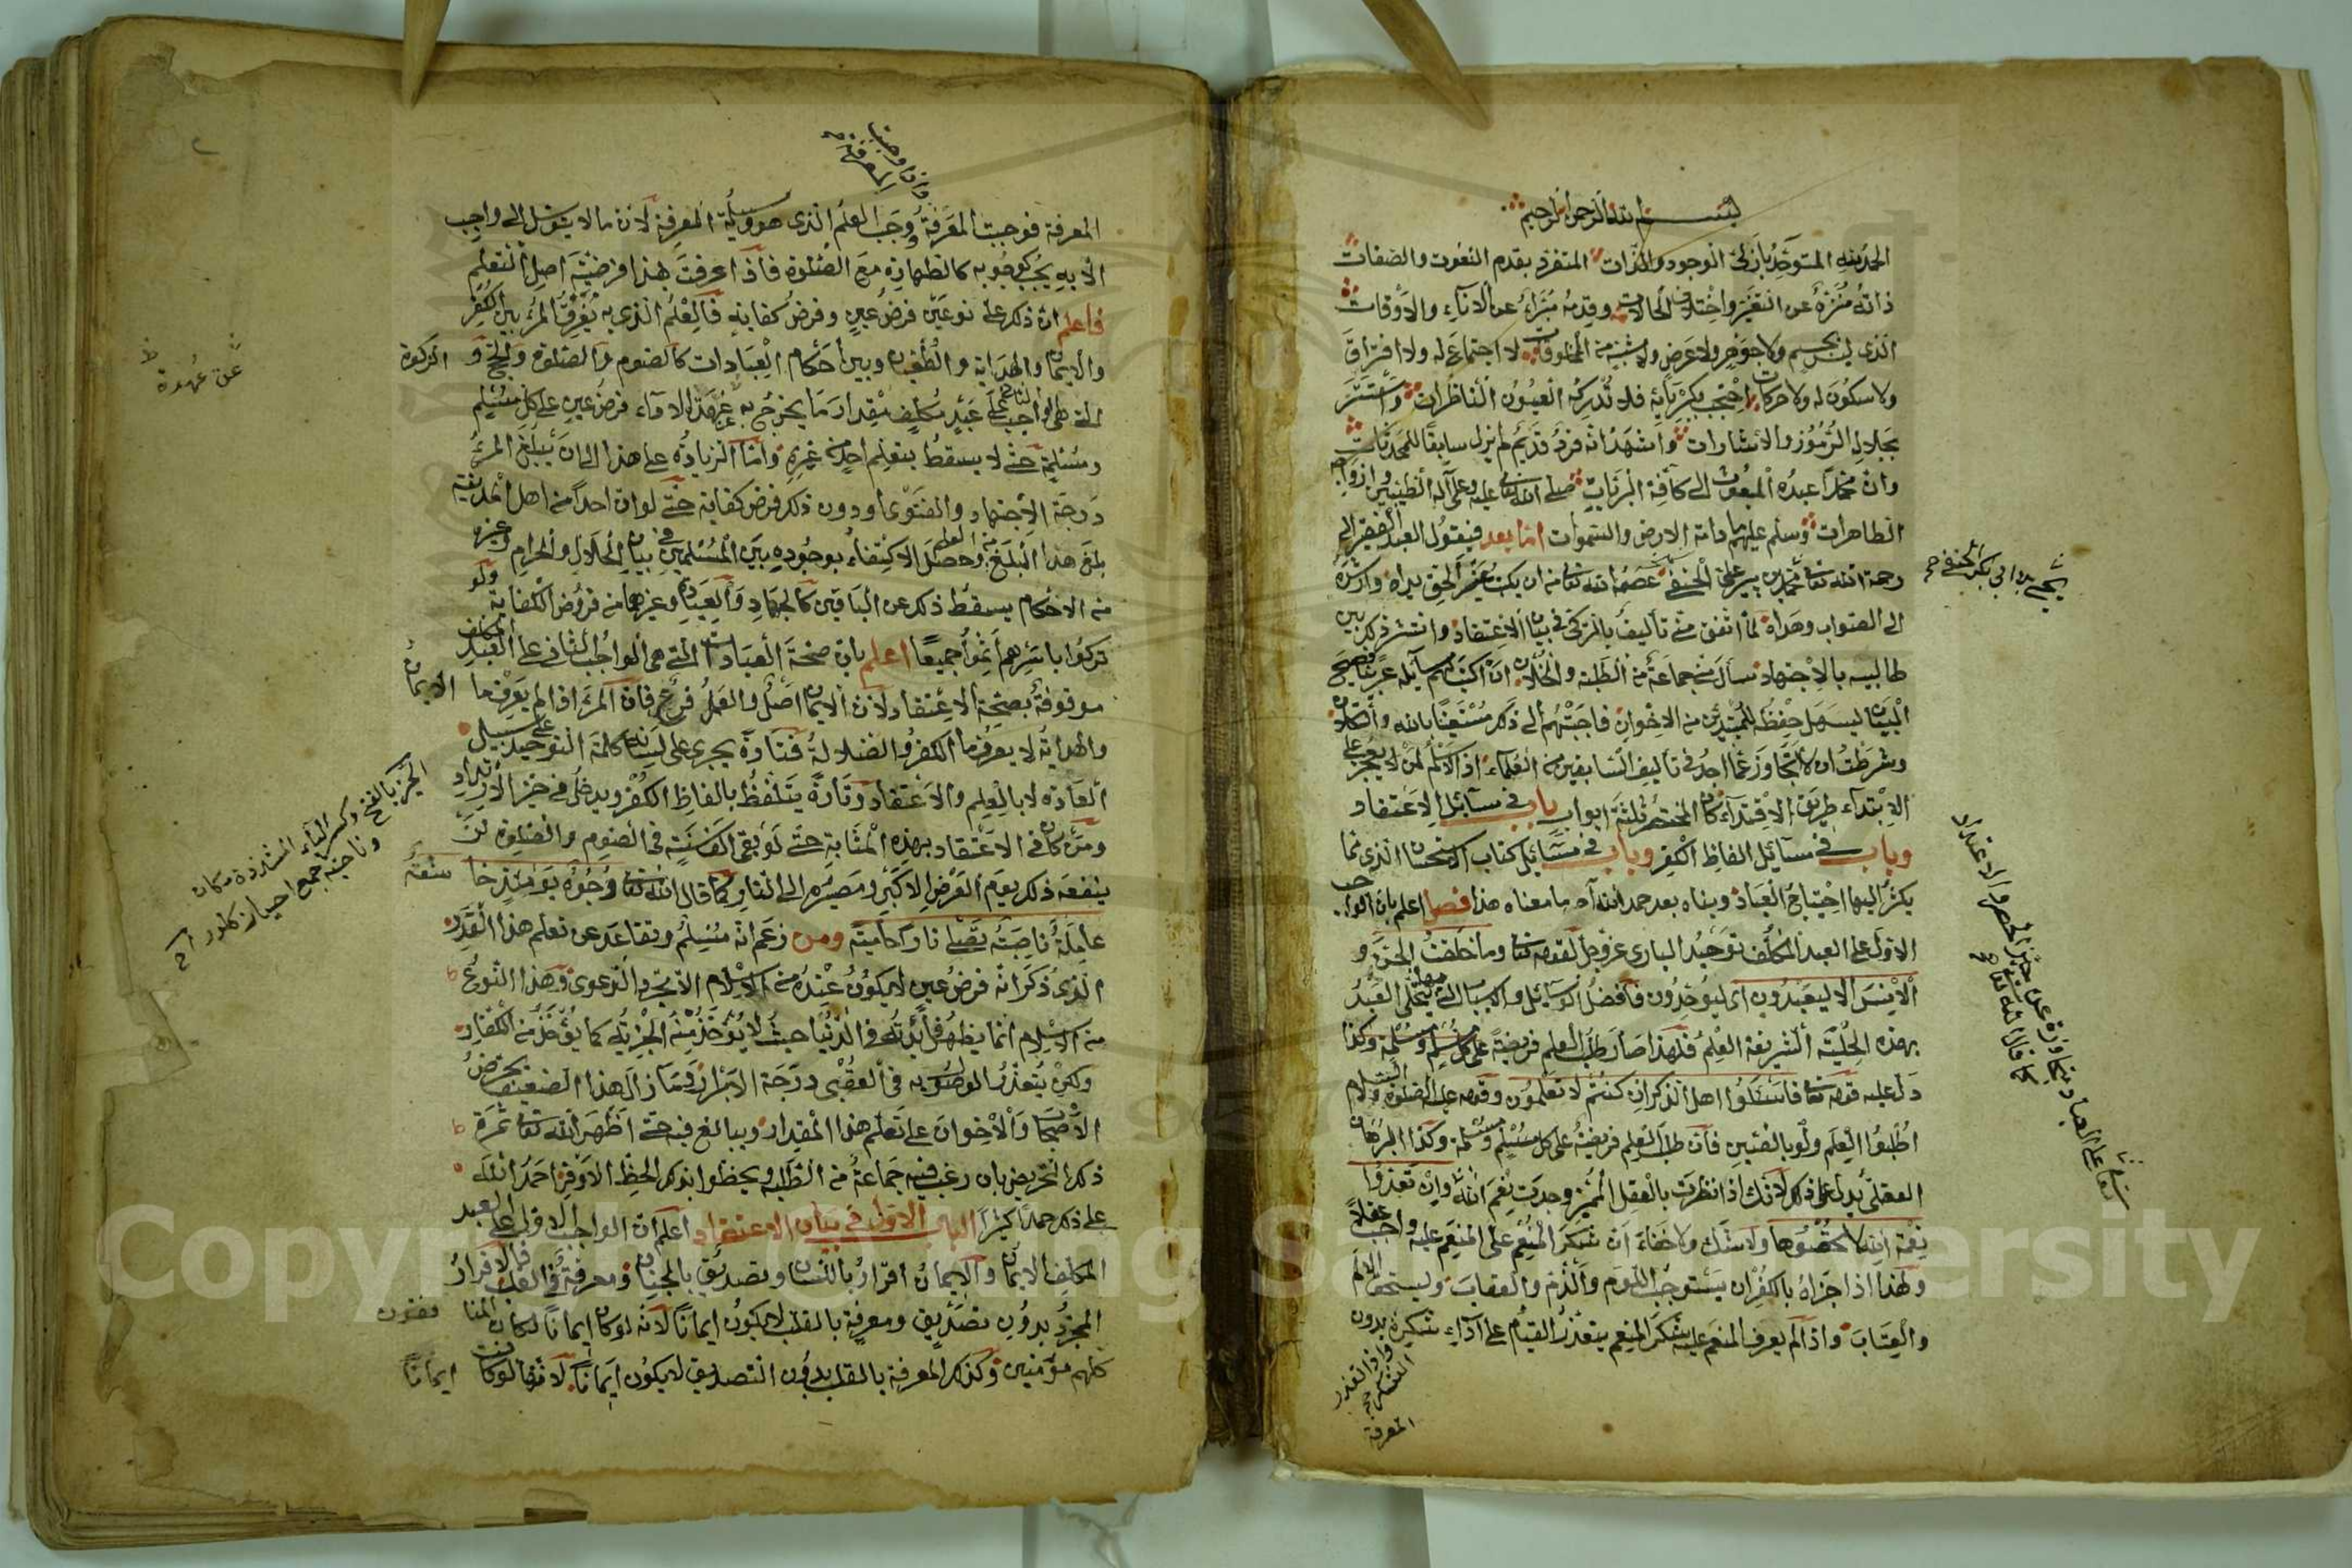 بسم الله الرحمن الرحيم
الحمد لله المتوحد بازلي الوجود والذات المتفرد بقدم النعوت والصفات
ذاته منزه عن التغير واختلاف الحالات وقدمه مبراء عن الاناء والاوقات
الذى ليس بجسم ولا جوهر ولا عرض ولا شبه من المخلوقات لا اجتماع له ولا افتراق
ولا سكون له ولا حركات احتجب بكبريائه فلا تدركه العيون الناظرات واستتر
بجلاله الرموز والاشارات واشهد انه فرد قديم لم يزل سابقا للمحدثات
وان محمدا عبده المبعوث الى كافة البريات صلى الله تعا عليه وعلى آله الطيبين وازواجه
الطاهرات وسلم عليهم ما دامة الارض والسموات اما بعد فيقول العبد الفقير الى
رحمة الله تعا محمد بن پير على الحنفى عصمه الله تعا من ان يكتب غير الحق يراه وارشده
الى الصواب وهداه لما اتفق منى تأليف بالتركى فى بيان الاعتقاد وانتشر ذكره بين
طالبيه بالاجتهاد سأل منى جماعة من الطلبة والخلان ان اكتب لهم مسآئله عربيا فصيح
البيان ليسهل حفظه للمبتدئين من الاخوان فاجبتهم الى ذلك مستعينا بالله والتكلان
وشرطت ان لا اتجاوز عما اجد فى تأليف السابقين من العلماء اذ الاسلم لمن لا يعجز على
الابتداء طريق الاقتداء كان المختصر ثلثة ابواب باب فى مسآئل الاعتقاد
وباب فى مسآئل الفاظ الكفر وباب فى مسآئل كتاب الاستحسان الذى مما
يكثر اليها احتياج العباد وبناه بعد حمد الله آه ما معناه هذا فصل اعلم بان الواجب
الاول على العبد المكلف توحيد البارى عز وجل لقوله تعا وما خلقت الجن و
الانس الا ليعبدون اى ليوحدون فافضل الوسائل والاسباب التى يتحلى بها العبد
بهذه الحلية الشريفة العلم فلهذا صار طلب العلم فريضة على كل مسلم ومسلمة وكذا
دل عليه قوله تعا فاسئلوا اهل الذكر ان كنتم لا تعلمون وقوله عليه الصلوة والسلام
اطلبوا العلم ولو بالصين فان طلب العلم فريضة على كل مسلم ومسلمة وكذا البرهان
العقلى يدل على ذلك لانك اذا نظرت بالعقل المميز وجدت نعم الله وان تعدوا
نعمة الله لا تحصوها ولا شك ولا خفاء ان شكر المنعم على المنعم عليه واجب عقلا
ولهذا اذا جزاه بالكفران يستوجب اللوم والذم والعقاب ويستحق الالم
والعتاب واذا لم يعرف المنعم عليه شكر المنعم يتعذر القيام على اداء شكره بدون
المعرفة
يحيى بن ابى بكر الحنفى
المعرفة فوجبت المعرفة وجب العلم الذى هو وسيلة المعرفة لان ما لا يتوسل الى واجب
الا به يجب كوجوبه كالطهارة مع الصلوة فاذا عرفت بهذا فرضية اصل التعلم
فاعلم ان ذلك على نوعين فرض عين وفرض كفاية فالعلم الذى به يفرق المرء بين الكفر
والايمان والهداية والطغيان وبين احكام العبادات كالصوم والصلوة والحج و الزكوة
التى هى الواجب الثانى على عبد مكلف مقدار ما يخرج به عن عهدة الاداء فرض عين على كل مسلم
ومسلمة حتى لا يسقط بتعلم احد من غيره واما الزيادة على هذا الى ان يبلغ المرء
درجة الاجتهاد والفتوى او دون ذلك فرض كفاية حتى لو ان احدا من اهل المدينة
بلغ هذا المبلغ من العلم وحصل الاكتفاء بوجوده بين المسلمين فى بيان الحلال والحرام وغيره
من الاحكام يسقط ذلك عن الباقين كالجهاد والعيادة وغيرهما من فروض الكفاية ولو
تركوا باسرهم اثموا جميعا اعلم بان صحة العبادات التى هى الواجب الثانى على العبد المكلف
موقوفة بصحة الاعتقاد لان الايمان اصل والعمل فرع فان المرء اذا لم يعرف ما الايمان
والهداية لا يعرف ما الكفر والضلالة فتارة يجرى على لسانه كلمة التوحيد على سبيل
العادة لا بالعلم والاعتقاد وتارة يتلفظ بالفاظ الكفر ويدخل فى حيز الارتداد
ومن كان فى الاعتقاد بهذه المثابة حتى لو بقى الف سنة فى الصوم والصلوة لن
ينفعه ذلك يوم العرض الاكبر ومصيره الى النار كما قال الله تعا وجوه يومئذ خاشعة
عاملة ناصبة تصلى نارا حامية ومن زعم انه مسلم وتقاعد عن تعلم هذا القدر
الذى ذكر انه فرض عين لا يكون عنده من الاسلام الا مجرد الدعوى وهذا النوع
من الاسلام انما يظهر فائدته فى الدنيا حيث لا يؤخذ منه الجزية كما يؤخذ من الكفار
ولكن يتعذر الوصول به فى العقبى درجة الابرار وما زال هذا الضعيف يحرض
الاصحاب والاخوان على تعلم هذا المقدار ويبالغ فيه حتى اظهر الله تعا ثمرة
ذلك التحريض بان رغب فيه جماعة من الطلبة ويحظوا بذلك الحظ الاوفر احمد الله
على ذلك حمدا كثيرا الباب الاول فى بيان الاعتقاد اعلم ان الواجب الاول على العبد
المكلف الايمان والايمان اقرار باللسان وتصديق بالجنان ومعرفة فى القلب فالاقرار
المجرد بدون تصديق ومعرفة بالقلب لا يكون ايمانا لانه لو كان ايمانا لكان المنافقون
كلهم مؤمنين وكذلك المعرفة بالقلب بدون التصديق لا يكون ايمانا لانها لو كانت ايمانا
عن عهدة
الحيز بالفتح وكسر الياء المشددة مكان
Copyright © King Saud University